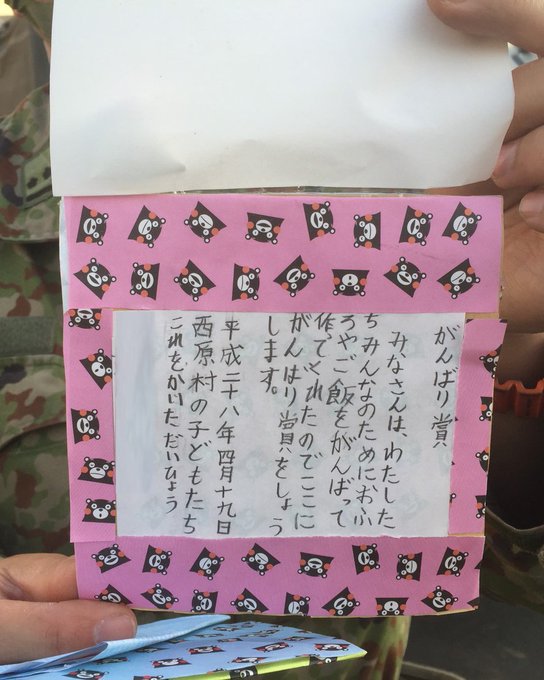 がんばり賞
みなさんは、わたした
ちみんなのためにおふ
ろやご飯をがんばって
作ってくれたのでここに
がんばり賞をしょう
します。
平成二十八年四月十九日
西原村の子どもたち
これをかいただいひょう